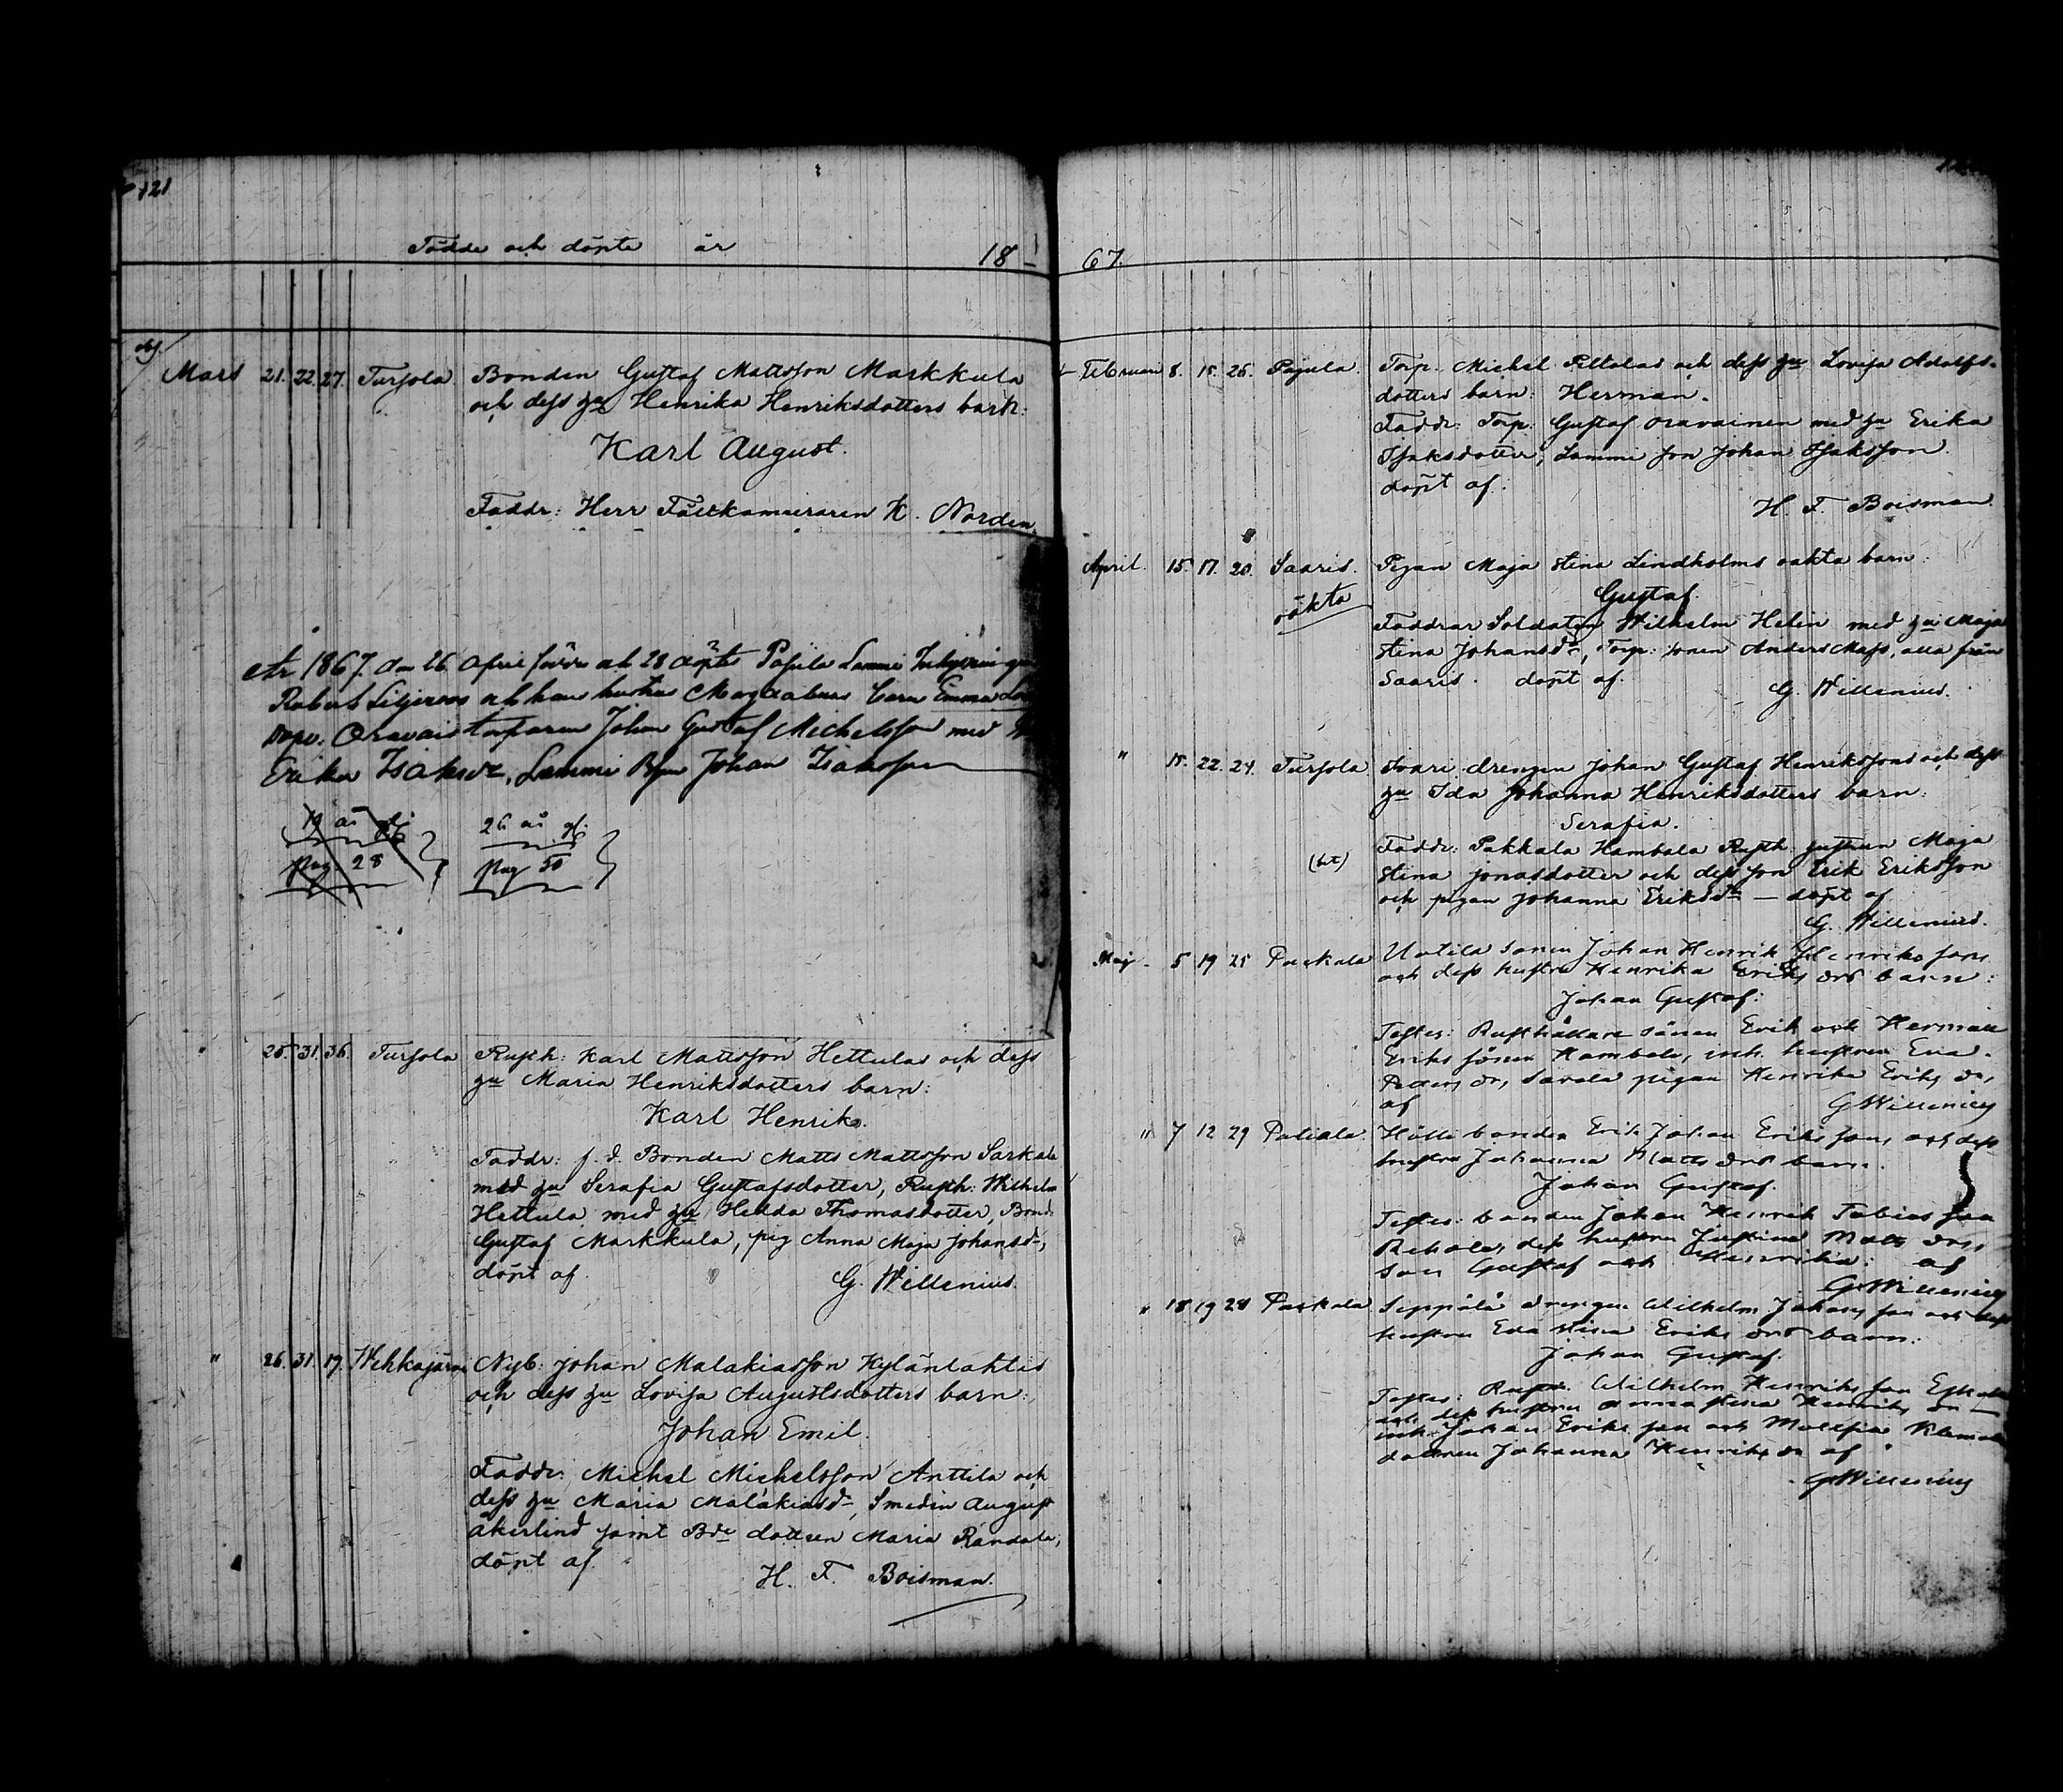 121
Födde och döpte år 18
Mars 21. 22. 27. Tursola Bonden Gustaf Mattsson Markkula
och dess hu Henrika Henriksdotters barn:
Karl August.
Faddr: Herr K. Norden
År 1867 den 26 April födde och 28 döpte Pajula Lammi
Robert och hans hustru Magdalenas barn Emma
Oravais torparen Johan Gustaf Michelsson med
Erika Isaksdr, Lammi Johan Isaksson
19 år gl.
pag 28
26 år gl.
pag 50
25. 31. 36. Tursola Rusth: Karl Mattsson Hettulas och dess
hu Maria Henriksdotters barn:
Karl Henrik.
Faddr: f. d. Bonden Matts Mattsson
med hu Serafia Gustafsdotter, Rusth: Wilhelm
Hettula med hu Hedda Thomasdotter, Bond:
Gustaf Markkula, pig Anna Maja Johansdr,
döpt af G. Willenius.
" 26. 31. 19. Wehkajärvi Nyb: Johan Malakiasson Kylänlahtis
och dess hu Lovisa Augustsdotters barn:
Johan Emil.
Faddr: Michel Michelsson Anttila och
dess hu Maria Malakiasdr, Smeden August
Åkerlind samt Bde dottren Maria Randala,
döpt af H. F. Boisman.
67.
Februari 8. 15. 26. Pajula. Torp. Michel Piltolas och dess hu Lovisa Adolfs-
dotters barn: Herman.
Faddr: Torp. Gustaf Oravainen med hu Erika
Isaksdotter, Lammi son Johan Isaksson.
döpt af:
H. F. Boisman.
April. 15. 17. 20. Saaris. Pigan Maja Stina Lindholms oäkta barn:
oäkta Gustaf.
Faddrar Soldaten Wilhelm Helin med hu Maja
Stina Johansdr, Torp: sonen Anders alla från
Saaris. döpt af.
G. Willenius.
" 15. 22. 24. Tursola drengen Johan Gustaf Henrikssons och dess
hu Ida Johanna Henriksdotters barn:
Serafia.
Faddr: Pakkala Hambala Rusth. hustrun Maja
Stina Jonasdotter och dess son Erik Eriksson
och pigan Johanna Eriksdr — döpt af
G. Willenius.
Maj 5 19 25 Pakkala Uotila sonen Johan Henrik Henrikssons
och dess hustru Henrika Eriks drs barn:
Johan Gustaf:
Testes: Rusthållare sönen Erik och Herman
Eriks söner Hambala, inh. hustrun Eva
dr, Savola pigan Henrika Eriks dr,
af G Willenius
" 7 12 29 bonden Erik Johan Erikssons och dess
hustru Johanna Matts drs barn.
Johan Gustaf.
Testes: bonden Johan Henrik Tobiasson
dess hustru Justina Matts dr,
son Gustaf och Henrika: af
G Willenius
" 18 19 28 Pakkala Seppälä drengen Wilhelm Johansson och dess
hustru Eva Stina Eriks drs barn:
Johan Gustaf.
Testes: Rusth. Wilhelm Henriksson
och dess hustru Anna Stina Henriks dr
inh. Johan Eriksson och
dottren Johanna Henriks dr af
G Willenius